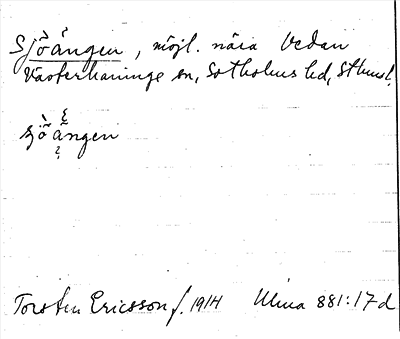 Sjöängen, möjl. nära Vedan
Västerhaninge sn, Sotholms hd, Sthms l.
sjöängen
Torsten Ericsson f. 1914 Ulma 881:17 d